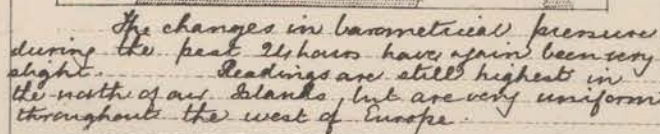 The changes in barometrical pressure
during the past 24 hours have again been very
slight. Readings are still highest in
the north of our Islands, but are very uniform
throughout the west of Europe.